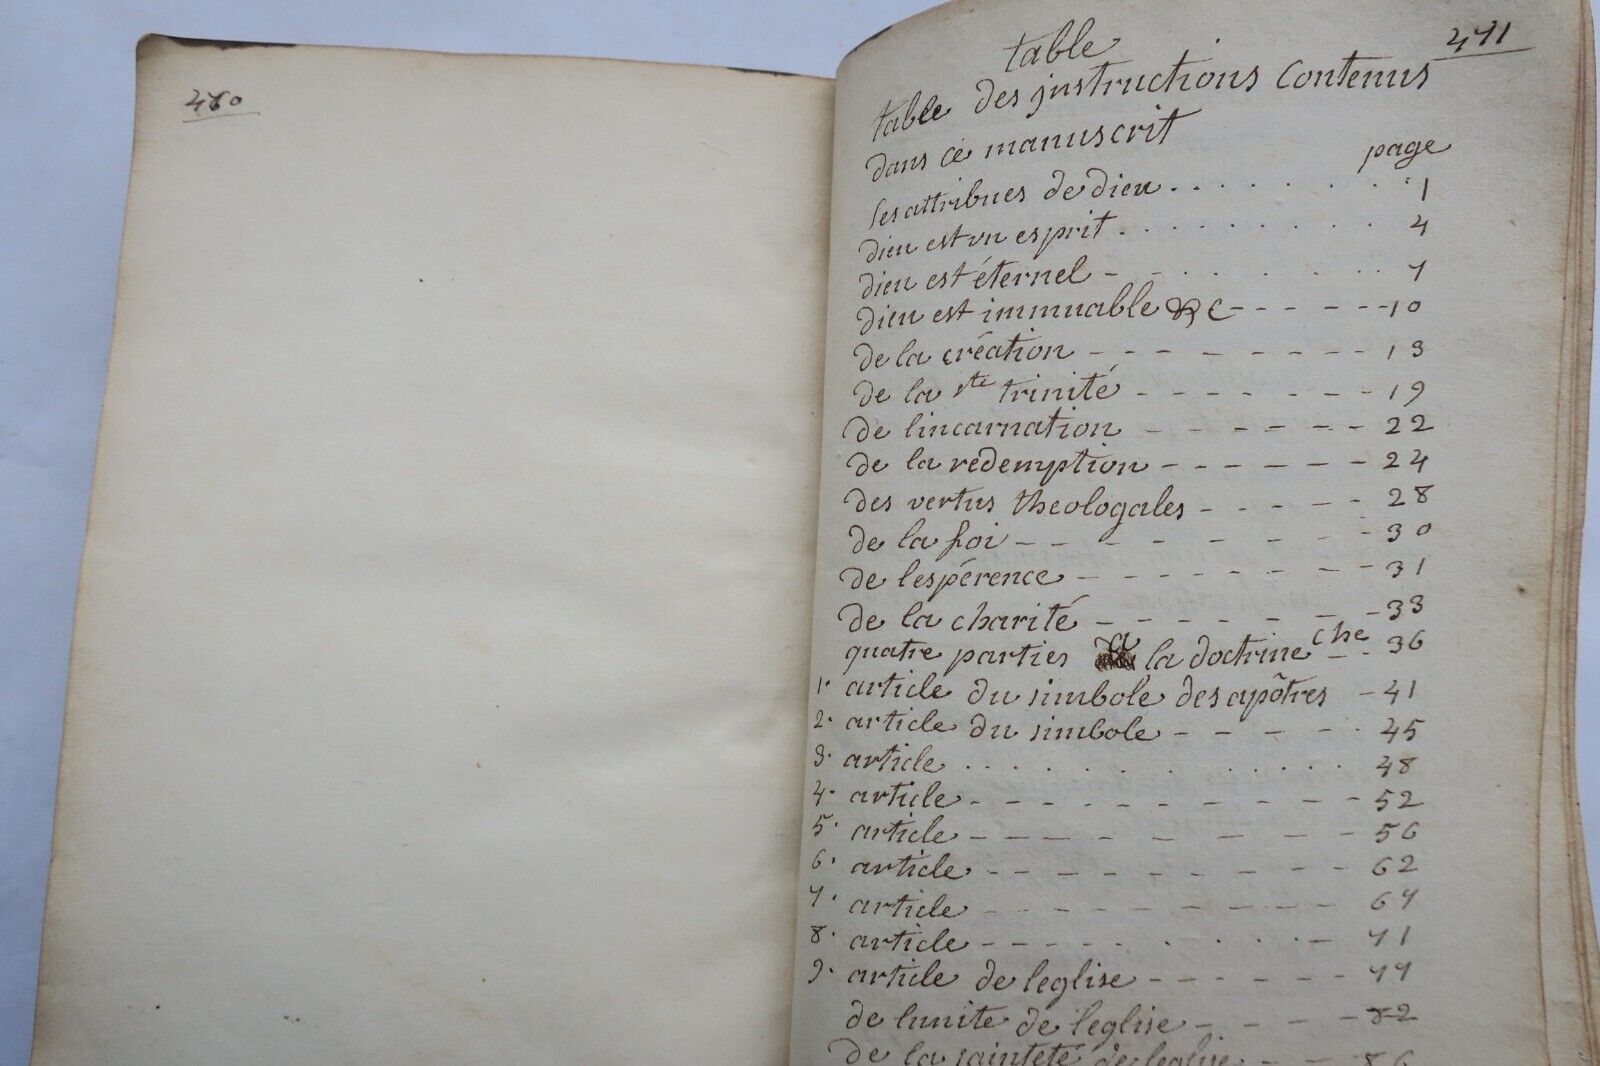 470
471
table
table des jnstructions Contenus
dans ce manuscrit
page
les attribues de dieu . . . . . . . . 1
dieu est un esprit . . . . . . . . . 4
dieu est éternel - - . . . . . . . 7
dieu est immuable &c - - - - - - 10
de la création - - - - - - - - - 13
de la ste trinité - - - - - - - 19
de lincarnation - - - - - - 22
de la redemption - - - - - - 24
des vertus theologales - - - - - 28
de la foi - - - - - - - - - 30
de lespérence - - - - - - - - 31
de la charité - - - - - - - 33
quatre parties de la doctrine che - - 36
1. article du simbole des apôtres - 41
2. article du simbole - - - - - . 45
3. article . . . . . . . . . . . 48
4. article - - - - - - - - - - 52
5. article - - - - - - - - - 56
6. article - - - - - - - - - 62
7. article - - - - - - - - - 67
8. article - - - - - . . . . - 71
9. article de leglise - - - - - - 77
de lunite de leglise - - - - 82
de la sainteté de leglise - - 86